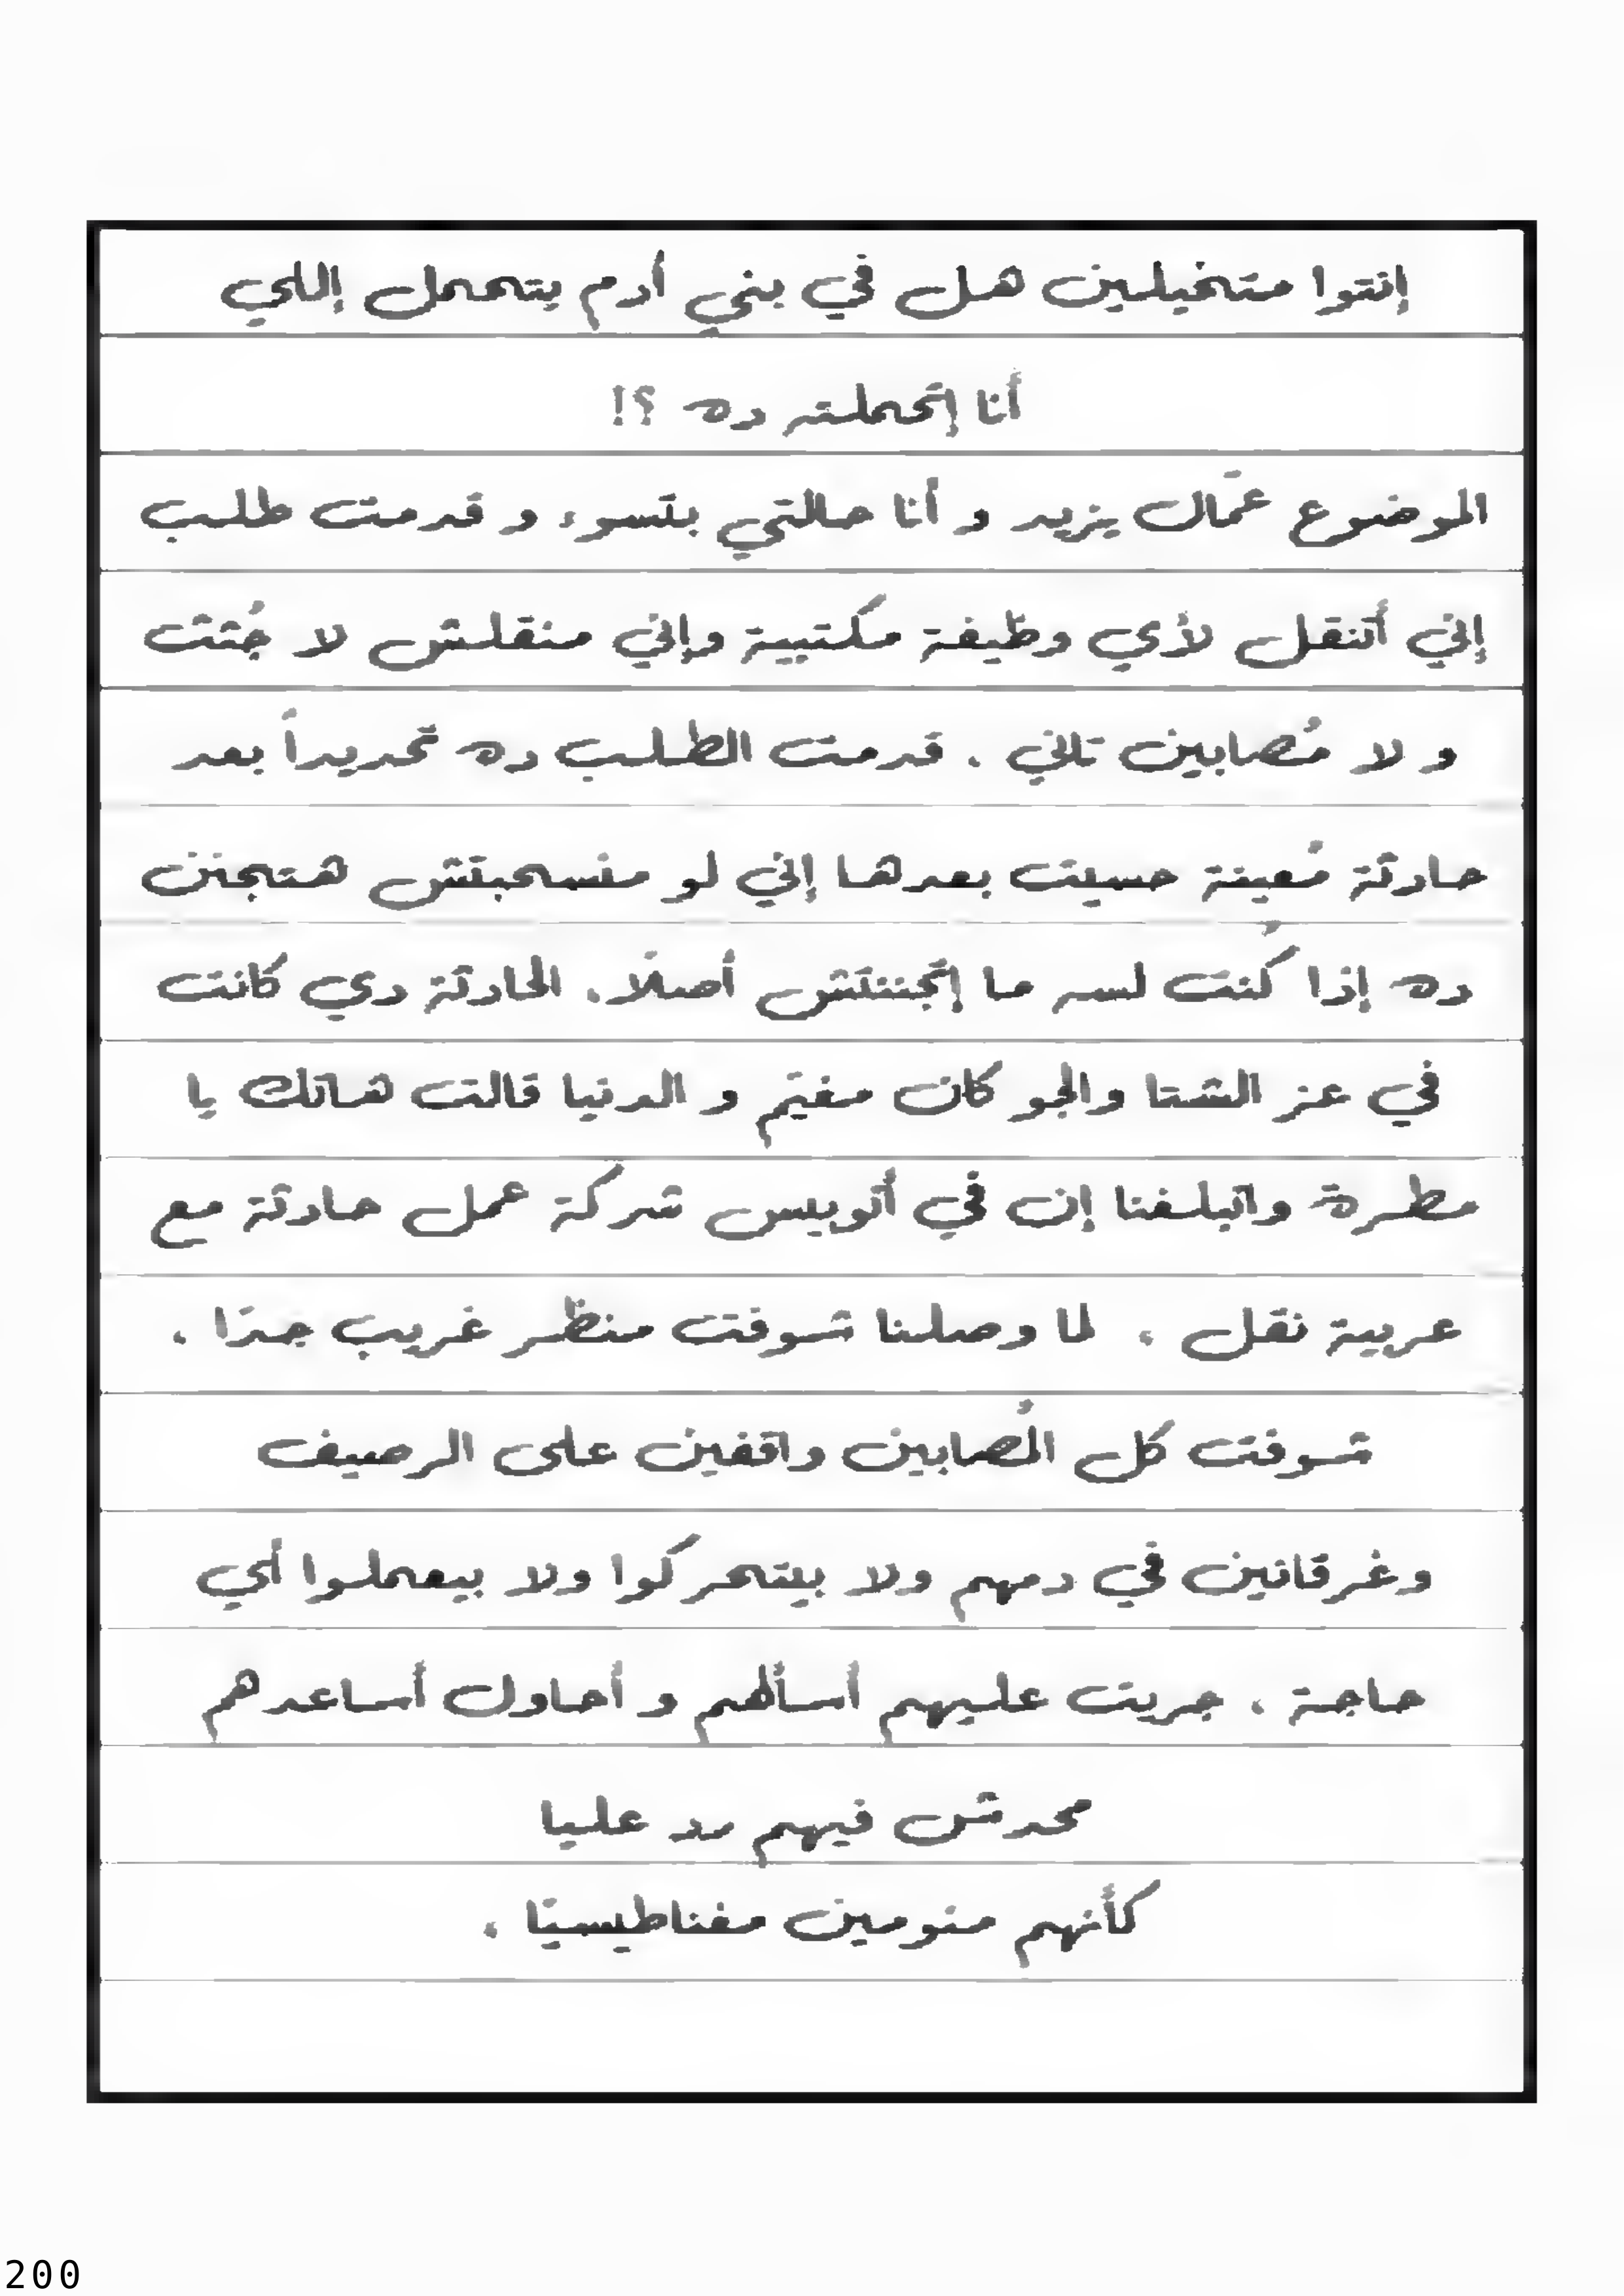 إنتوا متخيلين هل في بني أدم يتحمل إللي
أنا إتحملته ده ؟!
الموضوع عمّال يزيد و أنا حالتي بتسوء و قدمت طلب
إني أتنقل لأي وظيفة مكتبية وإني منقلش لا جُثث
و لا مُصابين تاني . قدمت الطلب ده تحديداً بعد
حادثة مُعينة حسيت بعدها إني لو منسحبتش هتجنن
ده إذا كُنت لسه ما إتجننتش أصلًا. الحادثة دي كانت
في عز الشتا والجو كان مغيّم و الدنيا قالت هاتك يا
مطرة واتبلغنا إن في أتوبيس شركة عمل حادثة مع
عربية نقل . لما وصلنا شوفت منظر غريب جدًا .
شوفت كل المُصابين واقفين على الرصيف
وغرقانين في دمهم ولا بيتحركوا ولا بيعملوا أي
حاجة . جريت عليهم أسألهم و أحاول أساعدهم
محدش فيهم رد عليا
كأنهم منومين مغناطيسيًا .
200